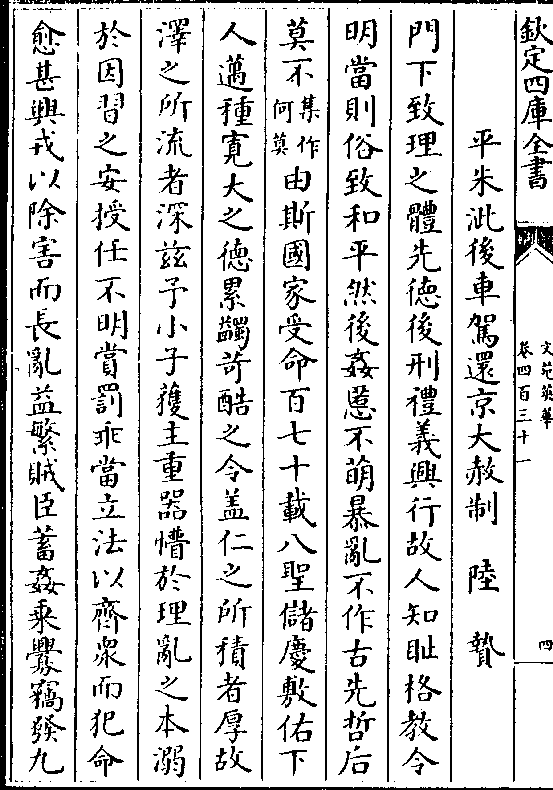 欽定四庫全書
文苑英華
卷四百三十一
四
平朱泚後車駕還京大赦制 陸贄
門下致理之體先德後刑禮義興行故人知恥格教令
明當則俗致和平然後姦慝不萌暴亂不作古先哲后
莫不集作何莫由斯國家受命百七十載八聖儲慶敷佑下
人邁種寛大之德累蠲苛酷之令盖仁之所積者厚故
澤之所流者深兹予小子獲主重器懵於理亂之本溺
於因習之安授任不明賞罰乖當立法以齊衆而犯命
愈甚興戎以除害而長亂益繁賊臣蓄姦乘釁竊發九